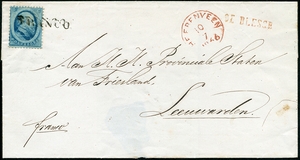 FRANCO
HEERENVEEN
Aan H. H. Provinciale Staten
van Friesland
Leeuwarden
franco